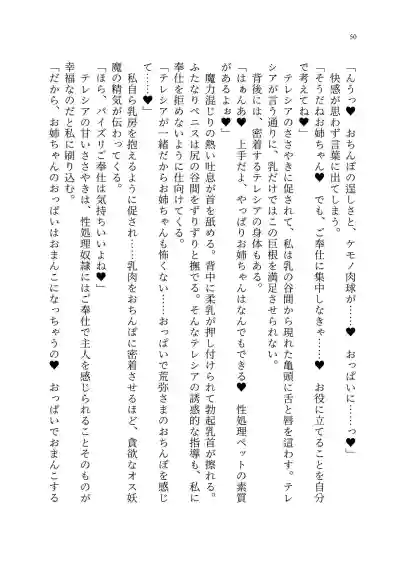 50
「んうっ♥　おちんぽの逞しさと、ケモノ肉球が……♥　おっぱいに……っ♥
快感が思わず言葉に出てしまう。
「そうだねお姉ちゃん♥　でも、ご奉仕に集中しなきゃ……♥　お役に立てることを自分
で考えてね♥」
テレシアのささやきに促されて、私は乳の谷間から現れた亀頭に舌と唇を這わす。テレ
シアが言う通りに、乳だけではこの巨根を満足させられない。
背後には、密着するテレシアの身体もある。
「はぁんあ♥　上手だよ、やっぱりお姉ちゃんはなんでもできる♥　性処理ペットの素質
があるよぉ♥」
魔力混じりの熱い吐息が首を舐める。背中に柔乳が押し付けられて勃起乳首が擦れる。
ふたなりペニスは尻の谷間をずりずりと撫でる。そんなテレシアの誘惑的な指導も、私に
奉仕を拒めないように仕向けてくる。
「テレシアが一緒だからお姉ちゃんも怖くない……おっぱいで荒弥さまのおちんぽを感じ
て……♥」
私自ら乳房を抱えるように促され……乳肉をおちんぽに密着させるほど、貪欲なオス妖
魔の精気が伝わってくる。
「ほら、パイズリご奉仕は気持ちいいよね♥」
テレシアの甘いささやきは、性処理奴隷にはご奉仕で主人を感じられることそのものが
幸福なのだと私に刷り込む。
「だから、お姉ちゃんのおっぱいはおまんこになっちゃうの♥　おっぱいでおまんこする